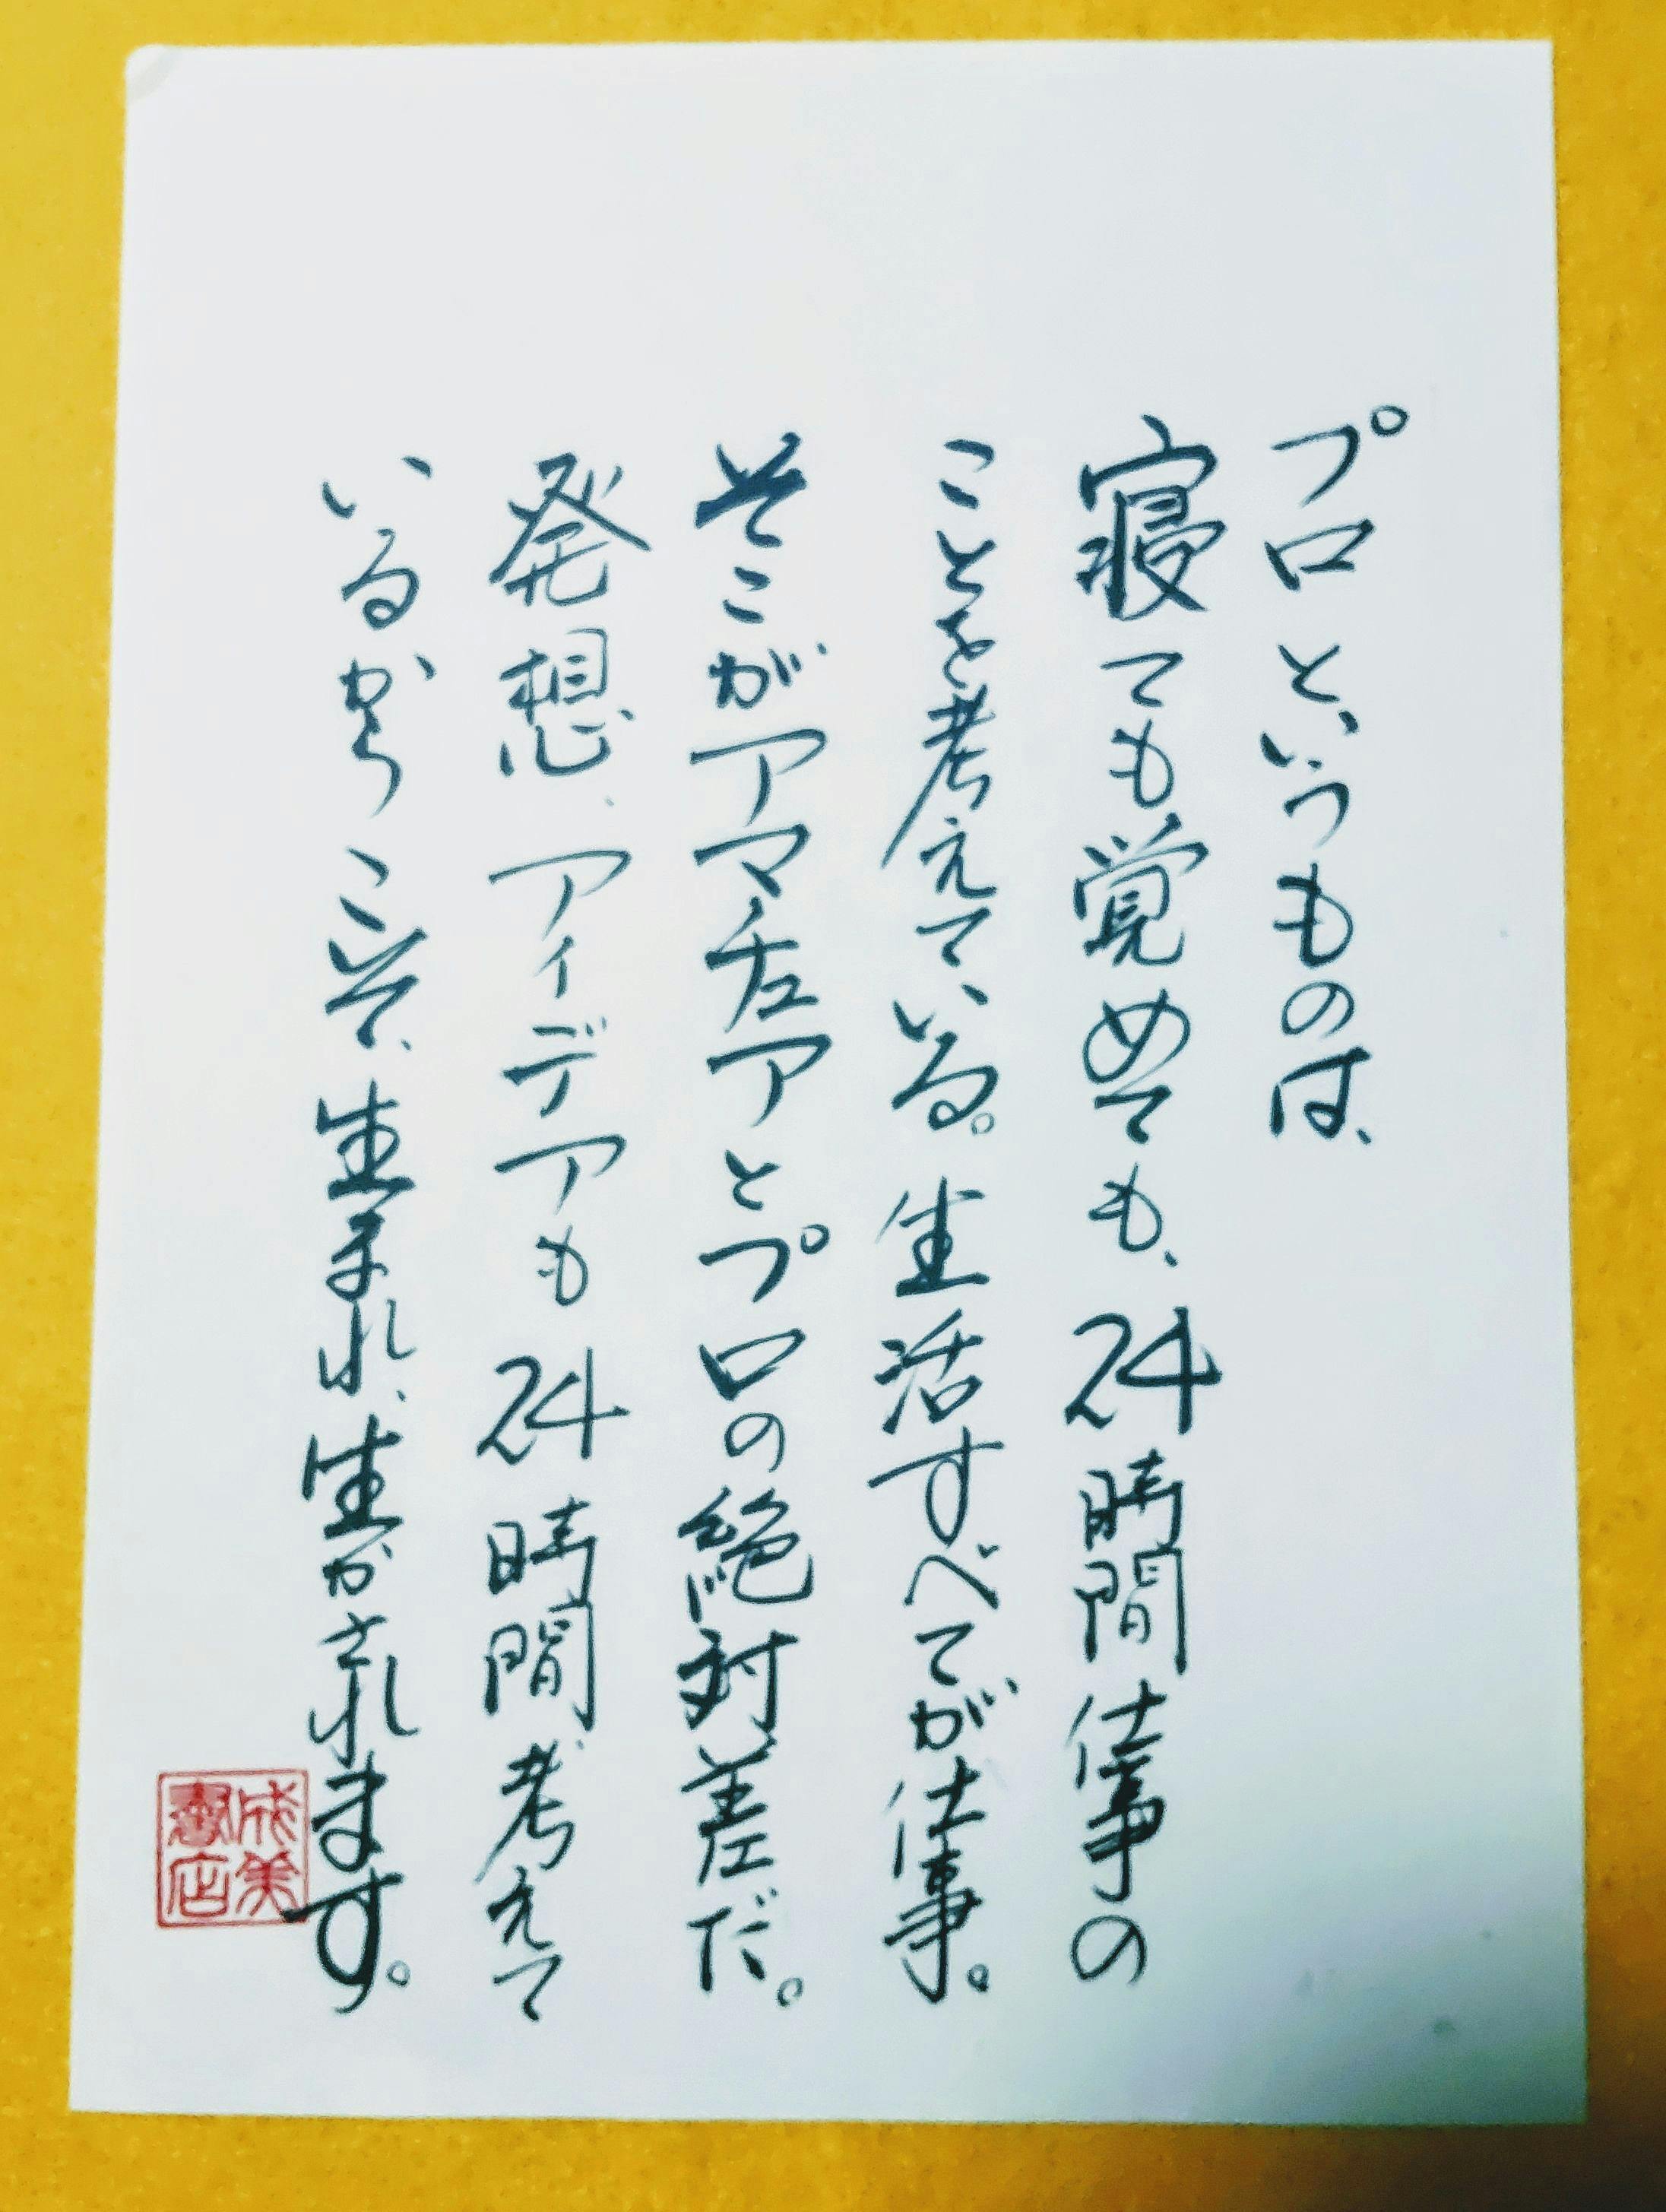 プロというものは、
寝ても覚めても、24時間仕事の
ことを考えている。生活すべてが仕事。
そこがアマチュアとプロの絶対差だ。
発想、アイデアも24時間考えて
いるからこそ、生まれ、生かされます。
成美
書店